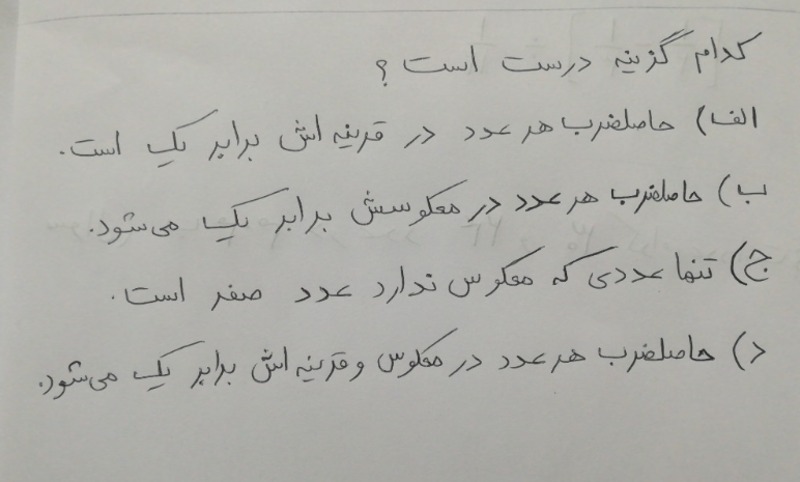 کدام گزینه درست است؟
الف) حاصلضرب هر عدد در قرینه اش برابر یک است.
ب) حاصلضرب هر عدد در معکوسش برابر یک می‌شود.
ج) تنها عددی که معکوس ندارد عدد صفر است.
د) حاصلضرب هر عدد در معکوس و قرینه اش برابر یک می‌شود.